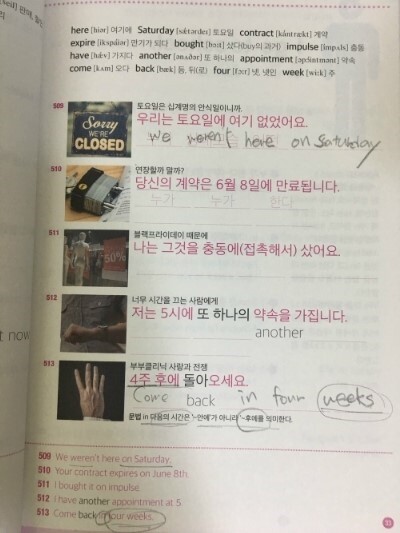 here [hiər] 여기에 Saturday [sǽtərdei] 토요일 contract [kάntrækt] 계약
expire [ikspáiər] 만기가 되다 bought [bɔːt] 샀다(buy의 과거) impulse [ímpʌls] 충동
have [hæv] 가지다 another [ənʌ́ðər] 또 하나의 appointment [əpɔ́intmənt] 약속
come [kʌm] 오다 back [bæk] 등, 뒤(로) four [fɔːr] 넷, 넷인 week [wiːk] 주
509
토요일은 십계명의 안식일이니까.
우리는 토요일에 여기 없었어요.
we weren't here on saturday
Sorry
WE'RE
CLOSED
510
연장할까 말까?
당신의 계약은 6월 8일에 만료됩니다.
누가 누가 한다
511
블랙프라이데이 때문에
나는 그것을 충동에(접촉해서) 샀어요.
50%
512
너무 시간을 끄는 사람에게
저는 5시에 또 하나의 약속을 가집니다.
another
t now
513
부부클리닉 사랑과 전쟁
4주 후에 돌아오세요.
Come back in four weeks
문법 in 다음의 시간은 '~안에'가 아니라 '~후에'를 의미한다.
509 We weren't here on Saturday.
510 Your contract expires on June 8th
511 I bought it on impulse
512 I have another appointment at 5
513 Come back in four weeks.